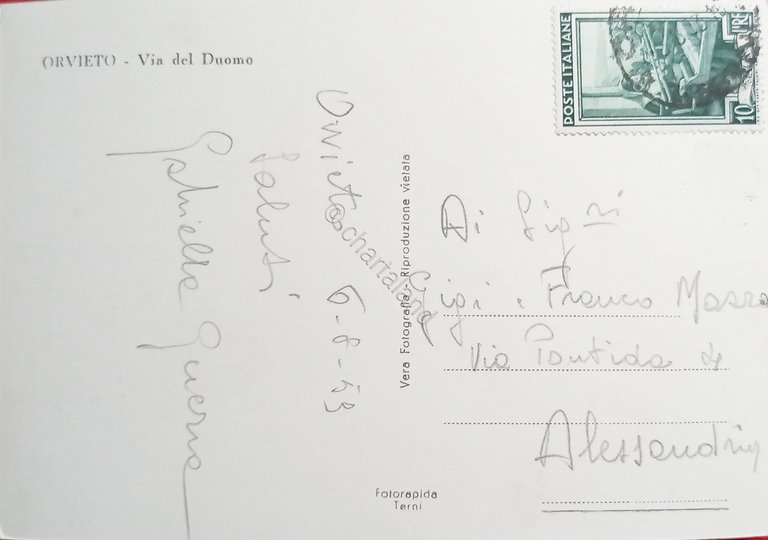 ORVIETO - Via del Duomo
Orvieto 6-8-53
Saluti
Gabriella Guerra
Vera Fotografia - Riproduzione vietata
Fotorapida
Terni
POSTE ITALIANE
LIRE
10
Gigi e Franco
Via Pontida 4
Alessandria
@chartaland